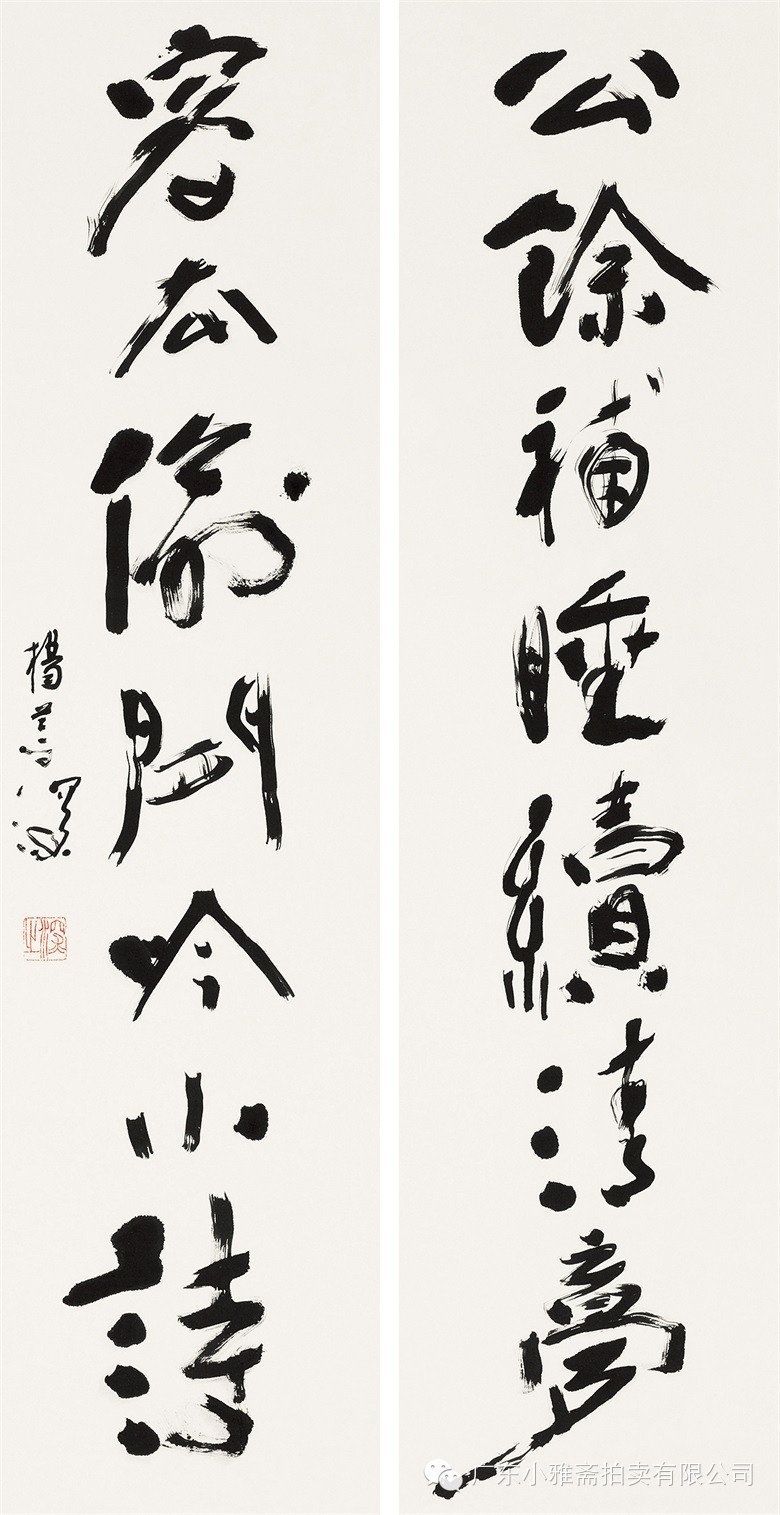 公餘補睡續清夢
客去偷閒吟小詩
楊善深
广东小雅斋拍卖有限公司